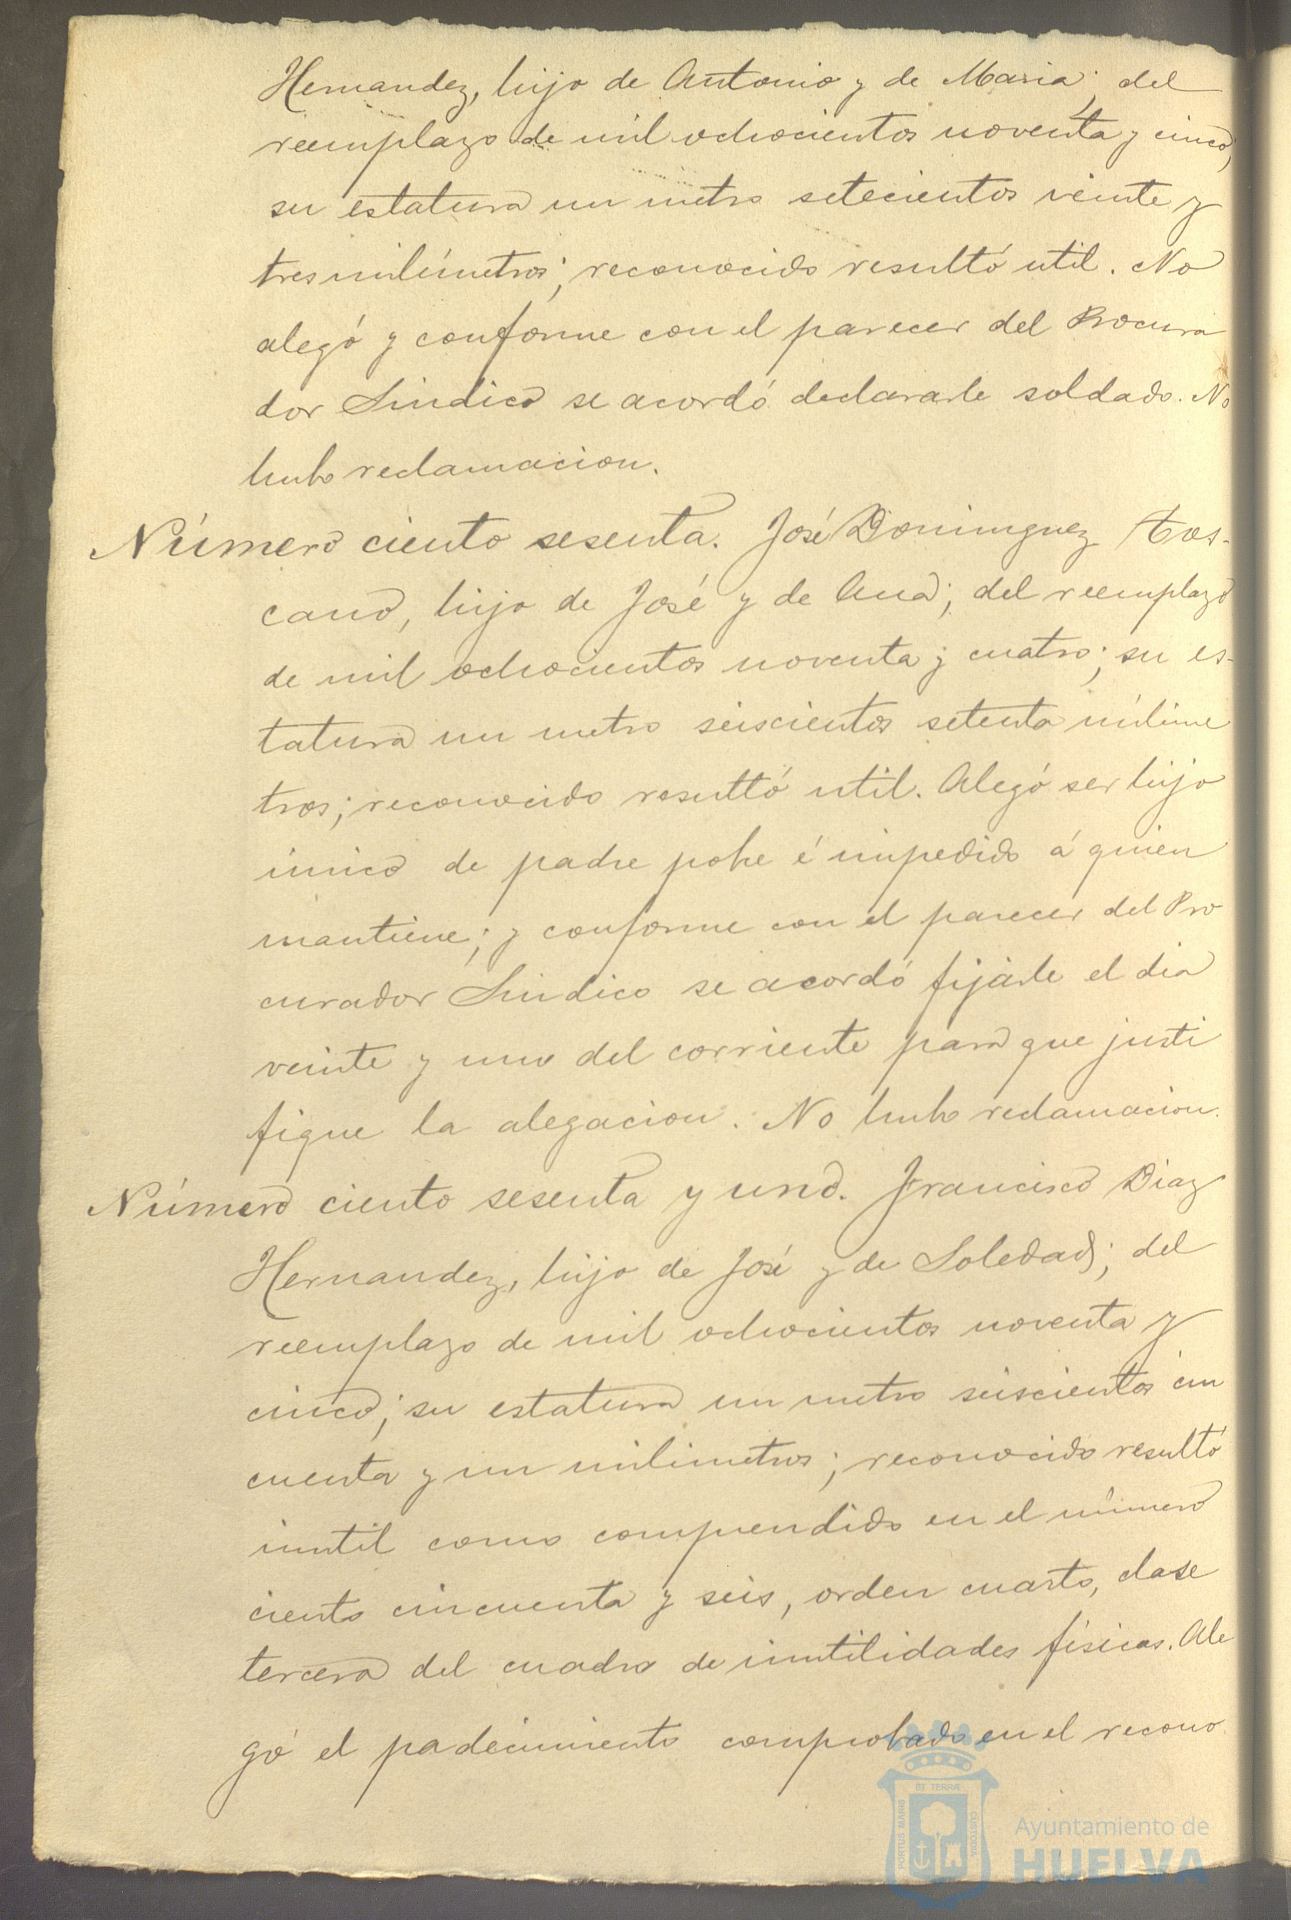 Hernandez, hijo de Antonio y de Maria; del
reemplazo de mil ochocientos noventa y cinco,
su estatura un metro setecientos veinte y
tres milímetros; reconocido resultó util. No
alegó y conforme con el parecer del Procura
dor Sindico se acordó declararle soldado. No
hubo reclamacion.
Número ciento sesenta. José Dominguez Tos-
cano, hijo de José y de Ana; del reemplazo
de mil ochocientos noventa y cuatro; su es-
tatura un metro seiscientos setenta milíme
tros; reconocido resultó util. Alegó ser hijo
único de padre pobre é impedido á quien
mantiene; y conforme con el parecer del Pro
curador Sindico se acordó fijarle el dia
veinte y uno del corriente para que justi
fique la alegacion. No hubo reclamacion.
Número ciento sesenta y uno. Francisco Diaz
Hernandez, hijo de José y de Soledad; del
reemplazo de mil ochocientos noventa y
cinco; su estatura un metro seiscientos cin
cuenta y un milimetros; reconocido resultó
inutil como comprendido en el número
ciento cincuenta y seis, orden cuarto, clase
tercera del cuadro de inutilidades físicas. Ale
gó el padecimiento comprobado en el recono
PORTUS MARIS
ET TERRÆ
CUSTODIA
Ayuntamiento de
HUELVA